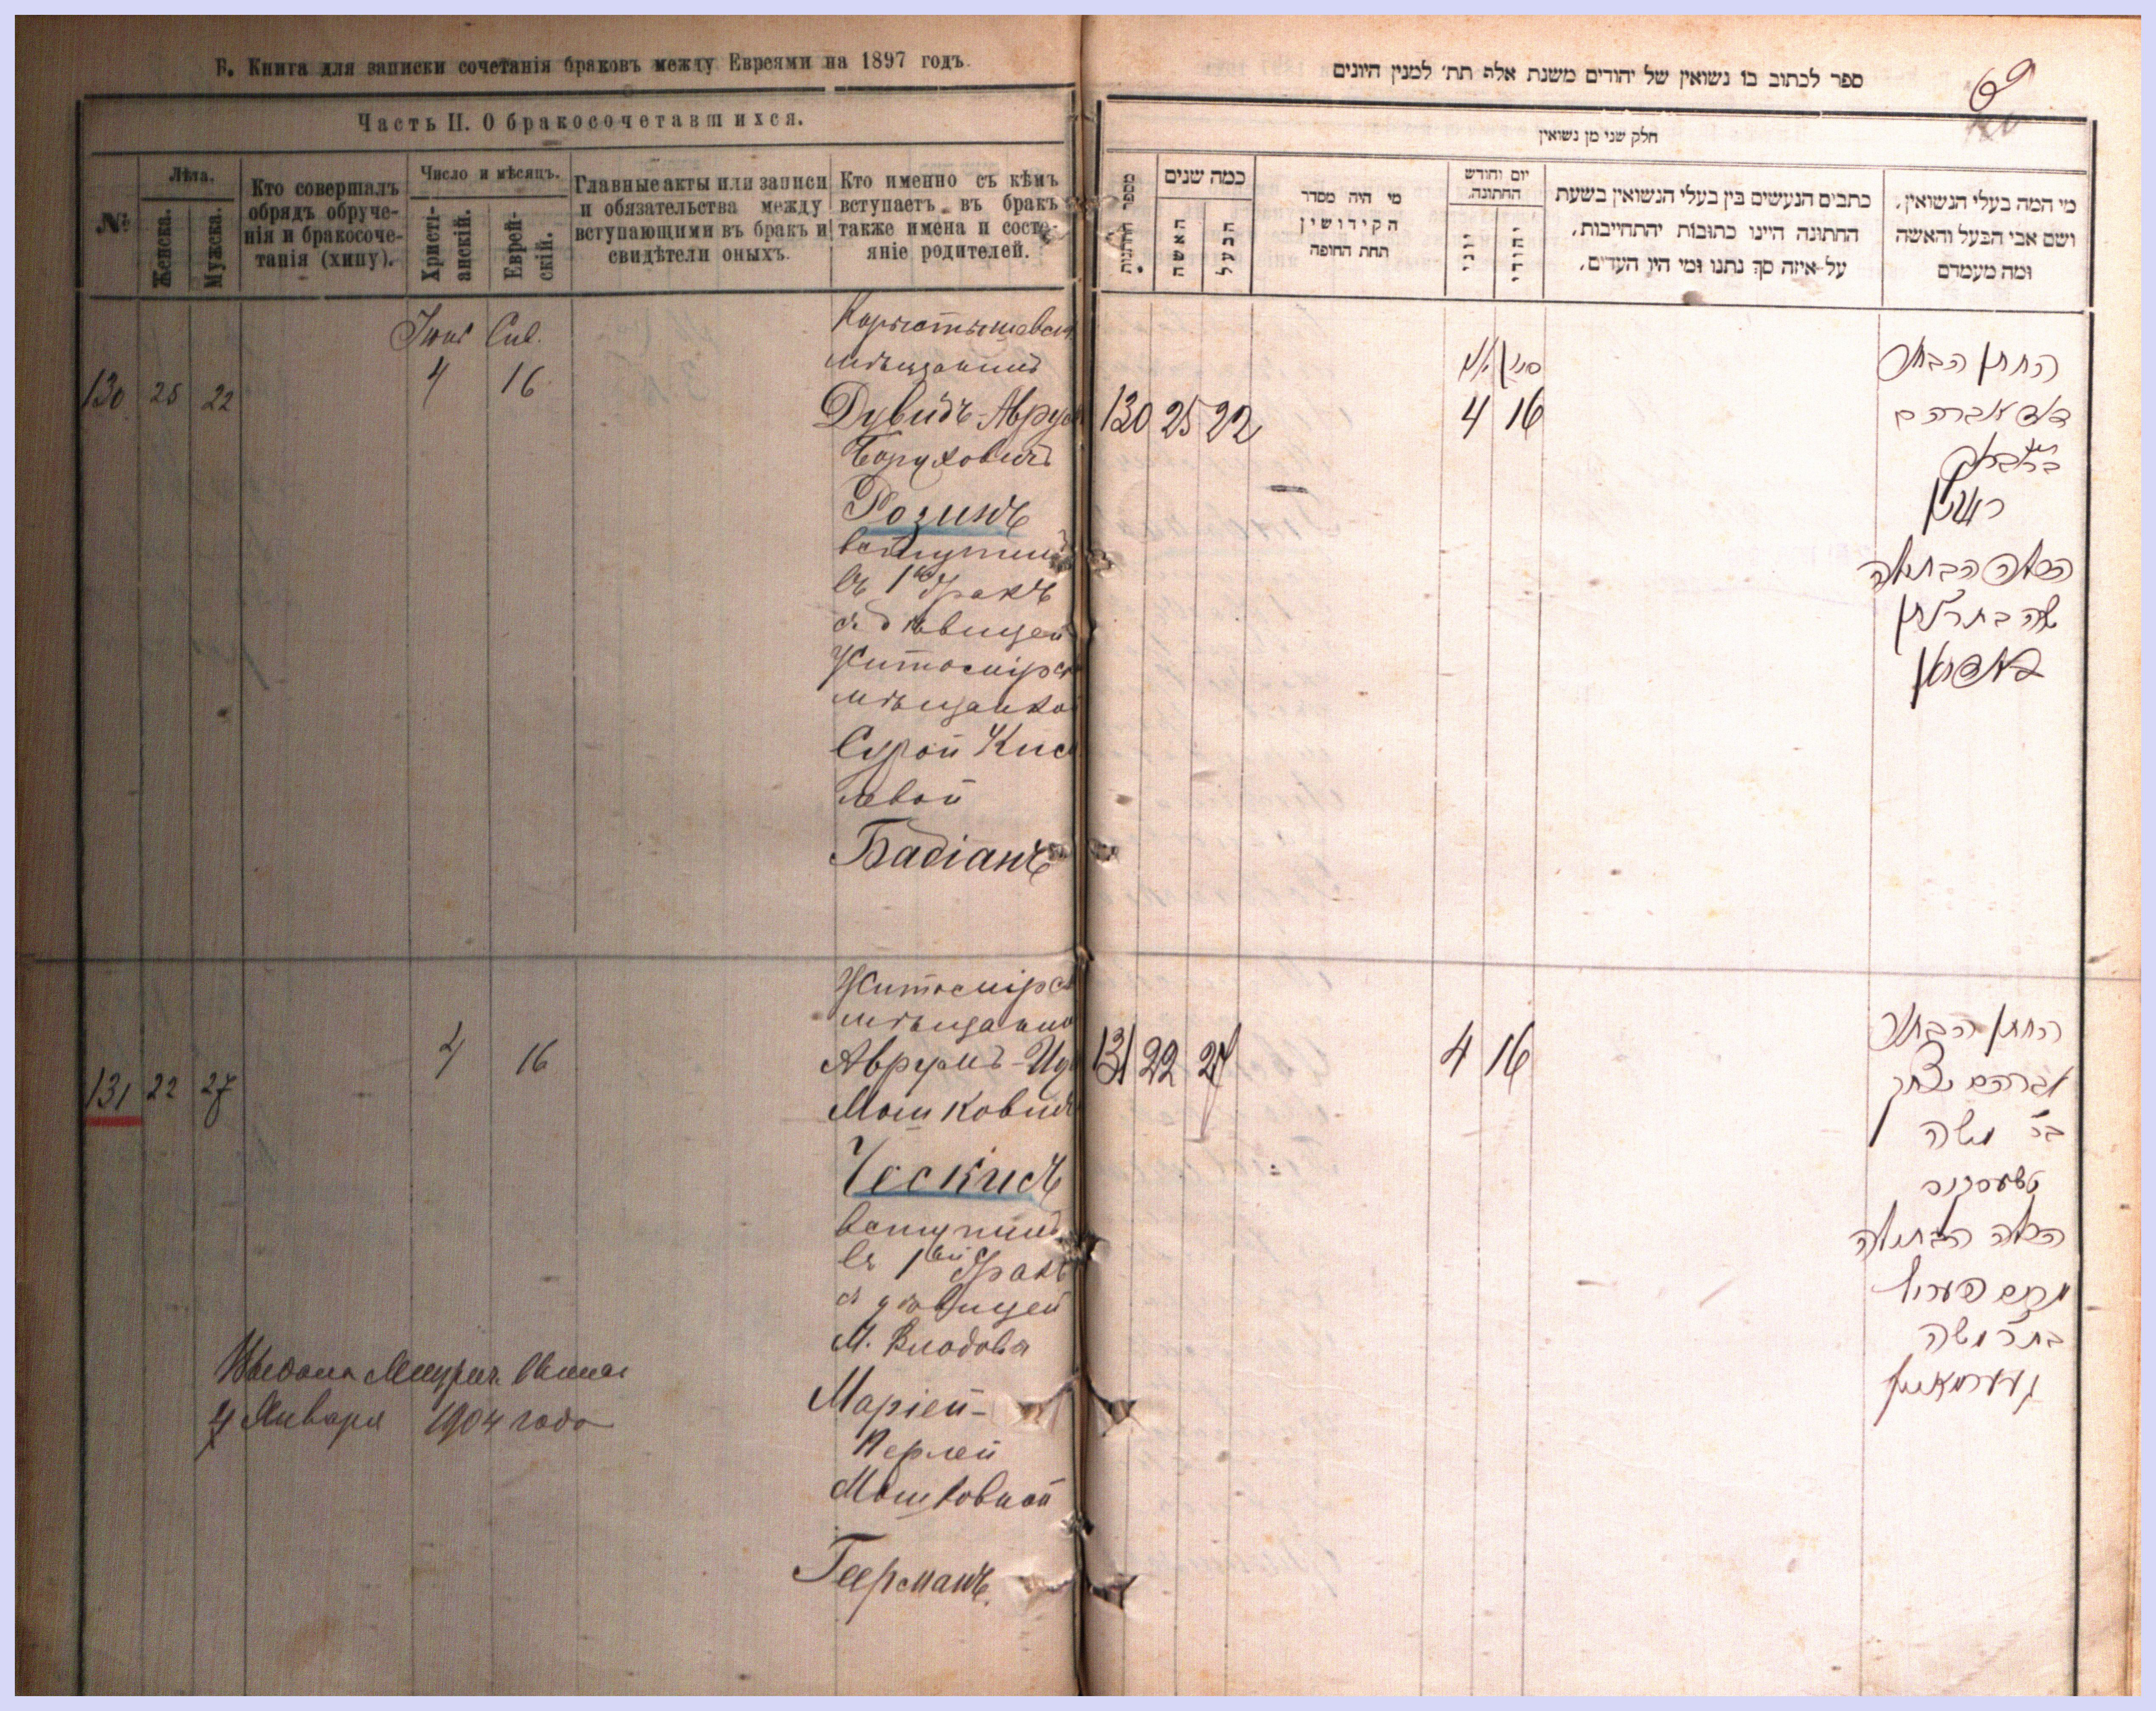 Б. Книга для записки сочетанія браковъ между Евреями на 1897 годъ.
Часть II. О бракосочетавшихся.
№
Лѣта.
Женска.
Мужска.
Кто совершалъ
обрядъ обруче-
нія и бракосоче-
танія (хипу).
Число и мѣсяцъ.
Христі-
анскій.
Еврей-
скій.
Главные акты или записи
и обязательства между
вступающими въ бракъ и
свидѣтели оныхъ.
Кто именно съ кѣмъ
вступаетъ въ бракъ
также имена и состо-
яніе родителей.
130 25 22
4 16
мѣщанинъ
Дувидъ-Авру
Боруховичъ
Розинъ
вступилъ
въ 1й бракъ
съ дѣвицей
Житомірс
мѣщанко
Сурой Кис
левой
Бадіанъ
131 22 27
4 16
Житомірс
мѣщанин
Аврумъ-Иц
Мошкович
Ческисъ
вступилъ
въ 1ый бракъ
съ дѣвицей
М.
Маріей-
Перлей
Мошковной
Геерманъ.
4 Января 1904 года
ספר לכתוב בו נשואין של יהודים משנת אלף תת׳ למנין היונים
69
חלק שני מן נשואין
מספר החתונות
כמה שנים
האשה
הבעל
מי היה מסדר
הקידושין
תחת החופה
יום וחודש
החתונה
יוני
יהודי
כתבים הנעשים בין בעלי הנשואין בשעת
החתונה היינו כתובות יהתחייבות,
על איזה סך נתנו ומי היו העדים,
מי המה בעלי הנשואין,
ושם אבי הבעל והאשה
ומה מעמדם
סיון
130 25 22
4 16
החתן הבחור
דוד אברהם
ראזין
הכלה הבתולה
שרה בת
131 22 27
4 16
החתן הבחור
אברהם יצחק
בר משה
טשעסקיס
הכלה הבתולה
מרים פערל
בת ר׳ משה
געערמאן